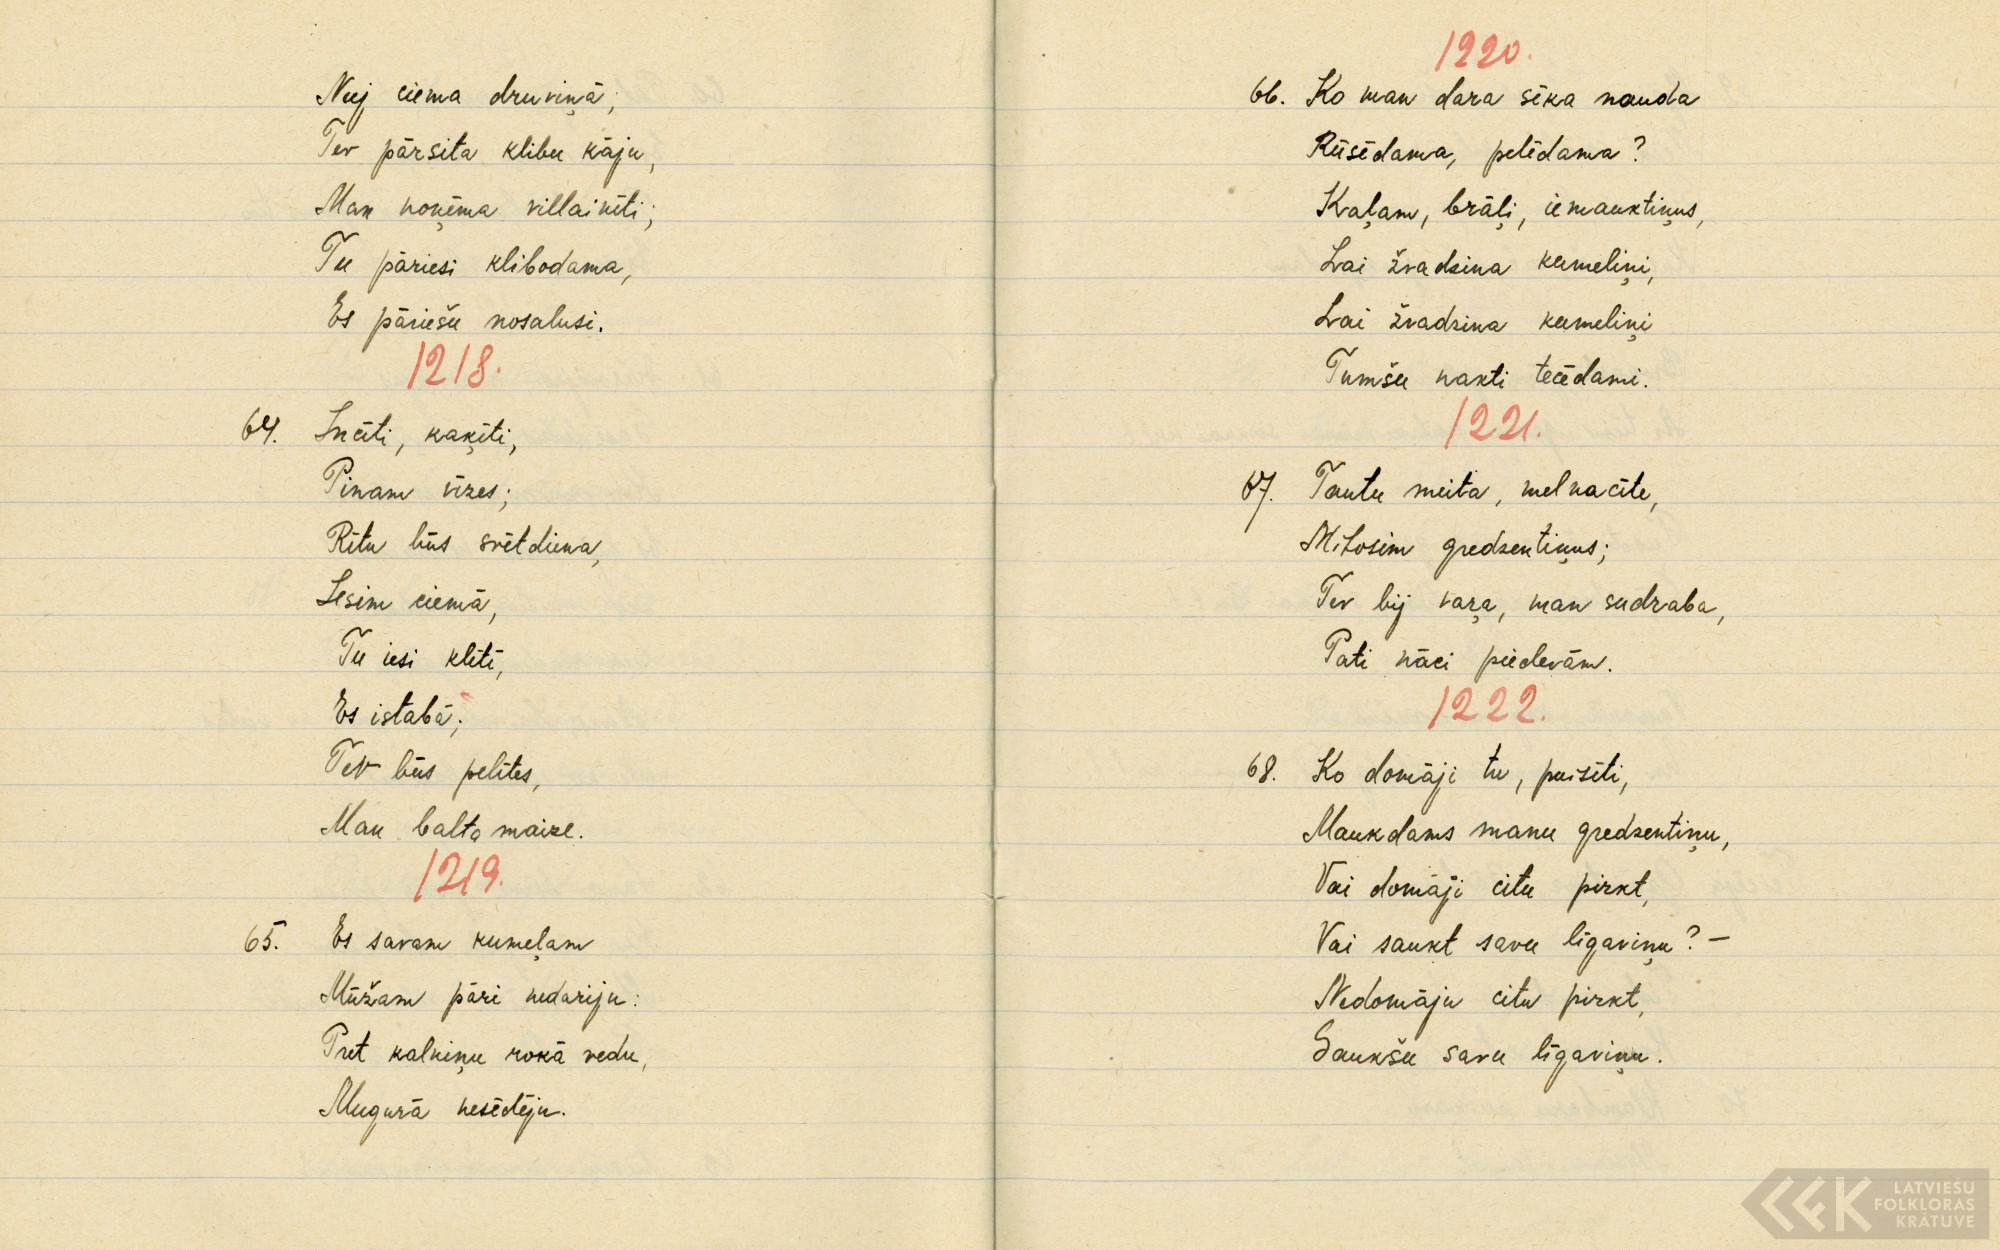 Neej ciema druviņā;
Tev pārsita klibu kāju,
Man noņēma villainīti;
Tu pāriesi klibodama,
Es pāriešu nosalusi.
1218.
64. Incīti, kaķīti,
Pinam vīzes;
Rītu būs svētdiena,
Iesim ciemā,
Tu iesi klētī,
Es istabā;
Tev būs pelītes,
Man balta maize.
1219.
65. Es savam kumeļam
Mūžam pāri nedarīju:
Pret kalniņu rokā vedu,
Mugurā nesēdēju.
1220.
66. Ko man dara sīka nauda
Rūsēdama, pelēdama?
Kaļam, brāļi, iemauktiņus,
Lai žvadzina kumeliņi,
Lai žvadzina kumeliņi
Tumšu nakti tecēdami.
1221.
67. Tautu meita, melnacīte,
Mitosim gredzentiņus;
Tev bij vaŗa, man sudraba,
Pati nāci piedevām.
1222.
68. Ko domāji tu, puisīti,
Maukdams manu gredzentiņu,
Vai domāji citu pirkt,
Vai saukt savu līgaviņu? –
Nedomāju citu pirkt,
Saukšu savu līgaviņu.
LATVIEŠU
FOLKLORAS
KRĀTUVE